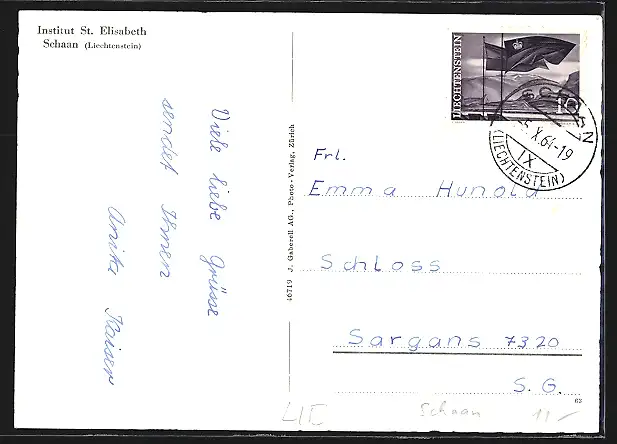 Institut St. Elisabeth
Schaan (Liechtenstein)
Viele liebe Grüsse
sendet Ihnen
Anita Kaiser
46719 J. Gaberell AG., Photo-Verlag, Zürich
LIECHTENSTEIN
10
X.64-19
IX
(LIECHTENSTEIN)
Frl.
Emma Hunold
Schloss
Sargans 7320
S. G.
63
LIE Schaan 11.-